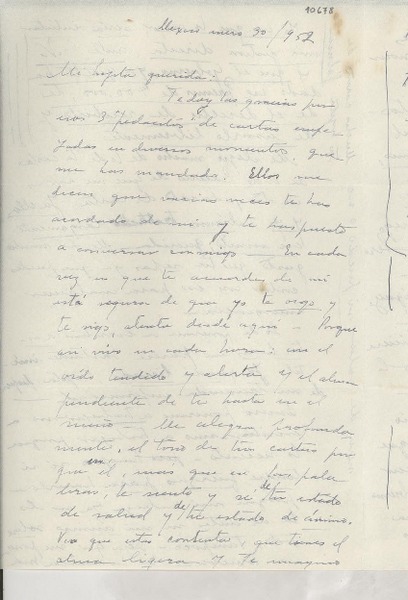 10678
Mexico enero 30/952
Mi hijita querida:
Te doy las gracias por
esos 3 "pedacitos" de cartas empe-
zadas en diversos momentos, que
me has mandado. Ellos me
dicen que varias veces te has
acordado de mí y te has puesto
a conversar conmigo — En cada
vez en que te acuerdes de mi
está segura de que yo te oigo y
te sigo, atenta desde aquí — Porque
así vivo en cada hora: con el
oído tendido y alerta y el alma
pendiente de ti hasta en el
sueño — Me alegra profunda-
mente, el tono de tus cartas por
que en él, mas que en las pala
bras, te siento y se de tu estado
de salud y de tu estado de ánimo.
Veo que estas contenta, que tienes el
alma ligera y te imagino